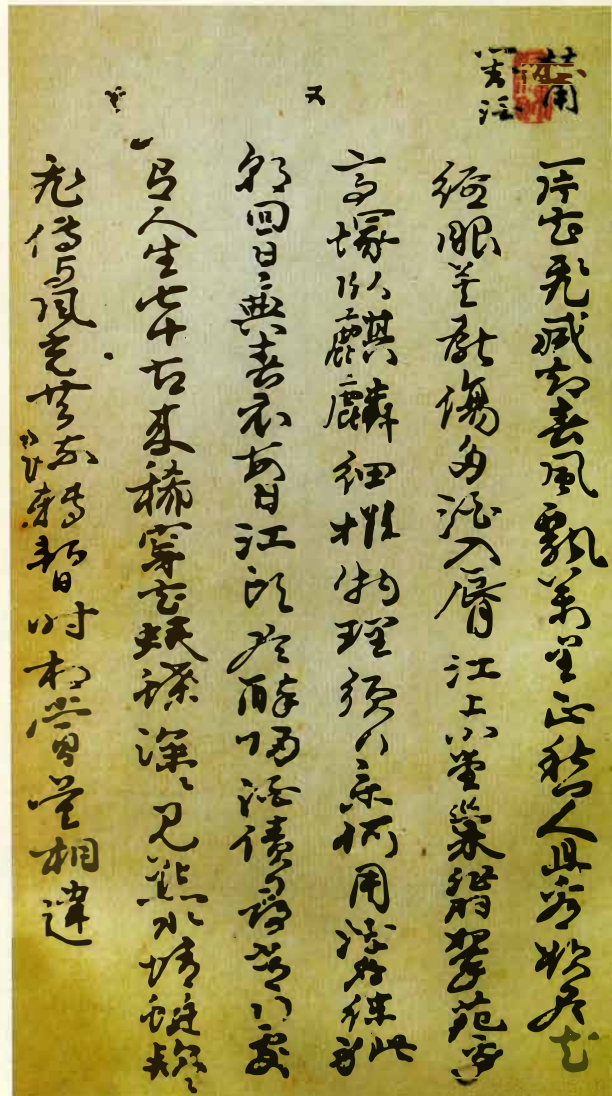 一片花飛減却春風飄萬點正愁人且看欲盡花
經眼莫厭傷多酒入脣江上小堂巢翡翠苑邊
高塚臥麒麟細推物理須行樂何用浮名絆此身
又
朝回日〻典春衣每日江頭盡醉歸酒債尋常行處
有人生七十古來稀穿花蛺蝶深〻見點水蜻蜓款〻
飛傳与風光共流轉暫時相賞莫相違